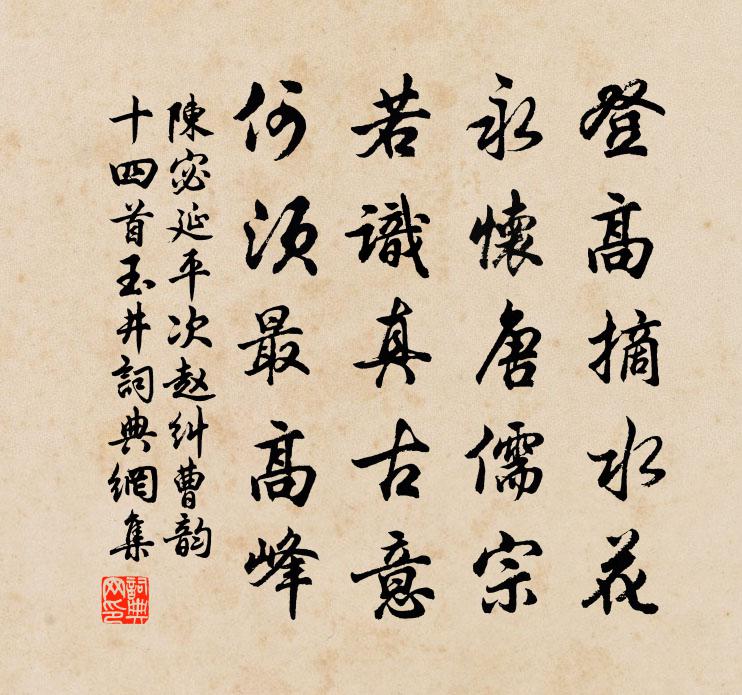 登高摘水花
永懷唐儒宗
若識真古意
何須最高峰
陳宓延平次趙糾曹韵
十四首玉井詞典網集
詞典網印